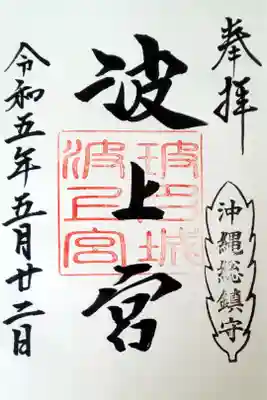 奉拝
沖縄総鎮守
波上宮
波上宮
令和五年五月廿二日